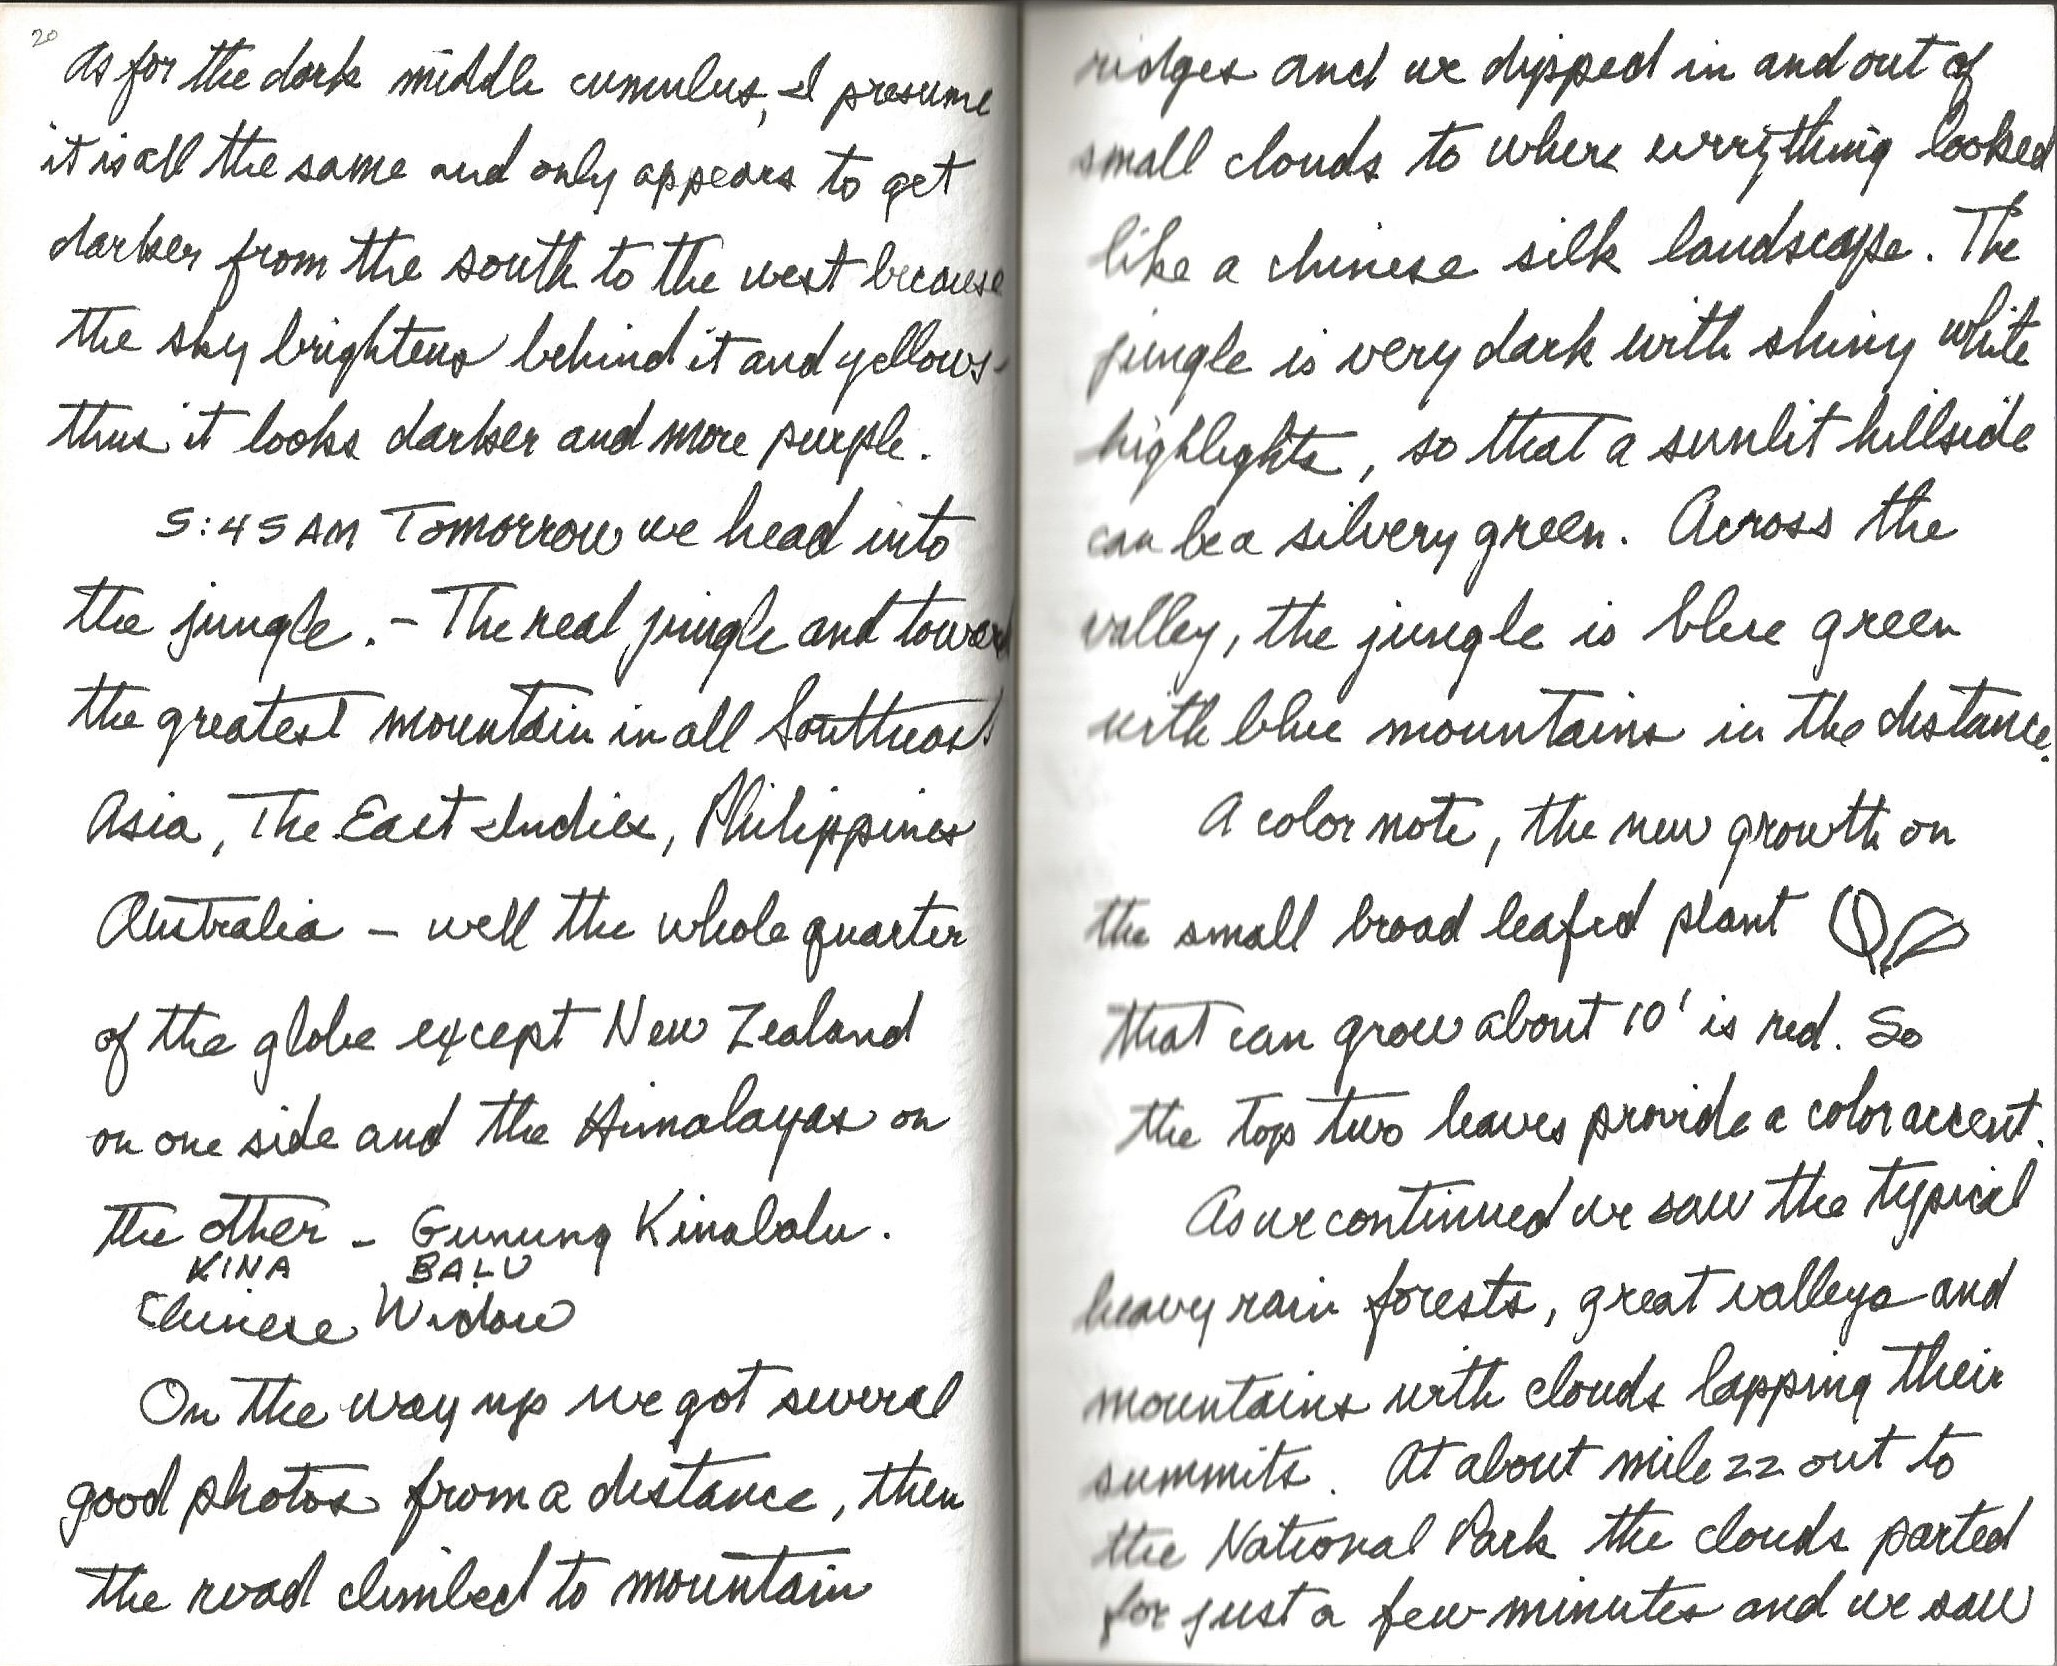 20
As for the dark middle cumulus, I presume
it is all the same and only appears to get
darker from the south to the west because
the sky brightens behind it and yellows -
thus it looks darker and more purple.
5:45 AM Tomorrow we head into
the jungle. - The real jungle and toward
the greatest mountain in all Southeast
Asia, The East Indies, Philippines
Australia - well the whole quarter
of the globe except New Zealand
on one side and the Himalayas on
the other - Gunung Kinabalu.
KINA BALU
Chinese Widow
On the way up we got several
good photos from a distance, then
the road climbed to mountain
ridges and we dipped in and out of
small clouds to where everything looked
like a chinese silk landscape. The
jungle is very dark with shiny white
highlights, so that a sunlit hillside
can be a silvery green. Across the
valley, the jungle is blue green
with blue mountains in the distance.
A color note, the new growth on
the small broad leafed plant
that can grow about 10' is red. So
the top two leaves provide a color accent.
As we continued we saw the typical
heavy rain forests, great valleys and
mountains with clouds lapping their
summits. At about mile 22 out to
the National Park the clouds parted
for just a few minutes and we saw